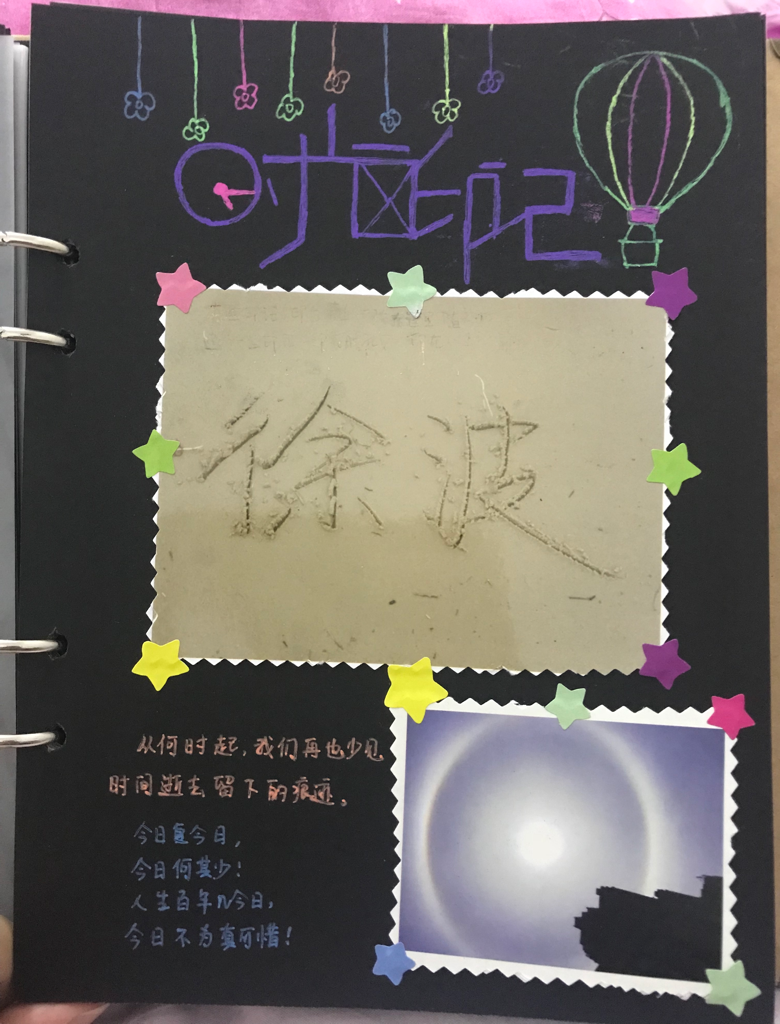 时画印记
徐波
从何时起，我们再也少见
时间逝去留下的痕迹。
今日复今日，
今日何其少！
人生百年几今日，
今日不为真可惜！